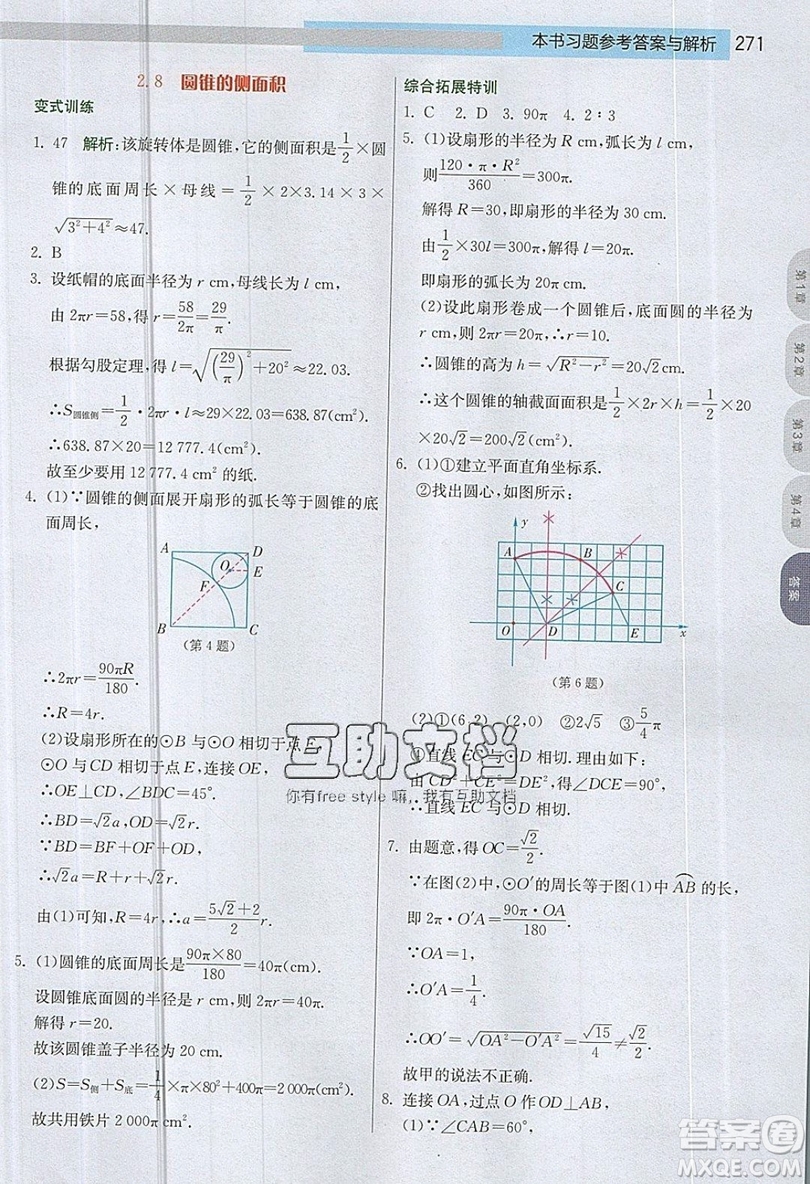 本书习题参考答案与解析 271
2.8 圆锥的侧面积
变式训练
1. 47 解析:该旋转体是圆锥,它的侧面积是1/2×圆
锥的底面周长×母线=1/2×2×3.14×3×
√(3²+4²)≈47.
2. B
3. 设纸帽的底面半径为r cm,母线长为l cm,
由2πr=58,得r=58/2π=29/π.
根据勾股定理,得l=√((29/π)²+20²)≈22.03(cm).
∴S圆锥侧=1/2·2πr·l≈29×22.03=638.87(cm²).
∴638.87×20=12 777.4(cm²).
故至少要用12 777.4 cm²的纸.
4. (1)∵圆锥的侧面展开扇形的弧长等于圆锥的底
面周长,
A D
O
E
F
B C
(第4题)
∴2πr=90πR/180.
∴R=4r.
(2)设扇形所在的⊙B与⊙O相切于点F,
⊙O与CD相切于点E,连接OE,
∴OE⊥CD,∠BDC=45°.
∴BD=√2a,OD=√2r.
∵BD=BF+OF+OD,
∴√2a=R+r+√2r.
由(1)可知,R=4r,∴a=(5√2+2)/2 r.
5. (1)圆锥的底面周长是90π×80/180=40π(cm).
设圆锥底面圆的半径是r cm,则2πr=40π.
解得r=20.
故该圆锥盖子半径为20 cm.
(2)S=S侧+S底=1/4×π×80²+400π=2 000π(cm²).
故共用铁片2 000π cm².
综合拓展特训
1. C 2. D 3. 90π 4. 2∶3
5. (1)设扇形的半径为R cm,弧长为l cm,
则120·π·R²/360=300π.
解得R=30,即扇形的半径为30 cm.
由1/2×30l=300π,解得l=20π.
即扇形的弧长为20π cm.
(2)设此扇形卷成一个圆锥后,底面圆的半径为
r cm,则2πr=20π.∴r=10.
∴圆锥的高为h=√(R²−r²)=20√2 cm.
∴这个圆锥的轴截面面积是1/2×2r×h=1/2×20
×20√2=200√2(cm²).
6. (1)①建立平面直角坐标系.
②找出圆心,如图所示:
y
A B
C
O D E x
(第6题)
(2)①(6,2) (2,0) ②2√5 ③5/4 π
④直线EC与⊙D相切.理由如下:
由CD²+CE²=DE²,得∠DCE=90°.
∴直线EC与⊙D相切.
7. 由题意,得OC=√2/2.
∵在图(2)中,⊙O′的周长等于图(1)中AB的长,
即2π·O′A=90π·OA/180.
∵OA=1,
∴O′A=1/4.
∴OO′=√(OA²−O′A²)=√15/4≠√2/2.
故甲的说法不正确.
8. 连接OA,过点O作OD⊥AB于点D,
(1)∵∠BAC=60°,
第1章
第2章
第3章
第4章
答案
互助文档
你有free style 嘛,我有互助文档
答案圈
MXQE.COM